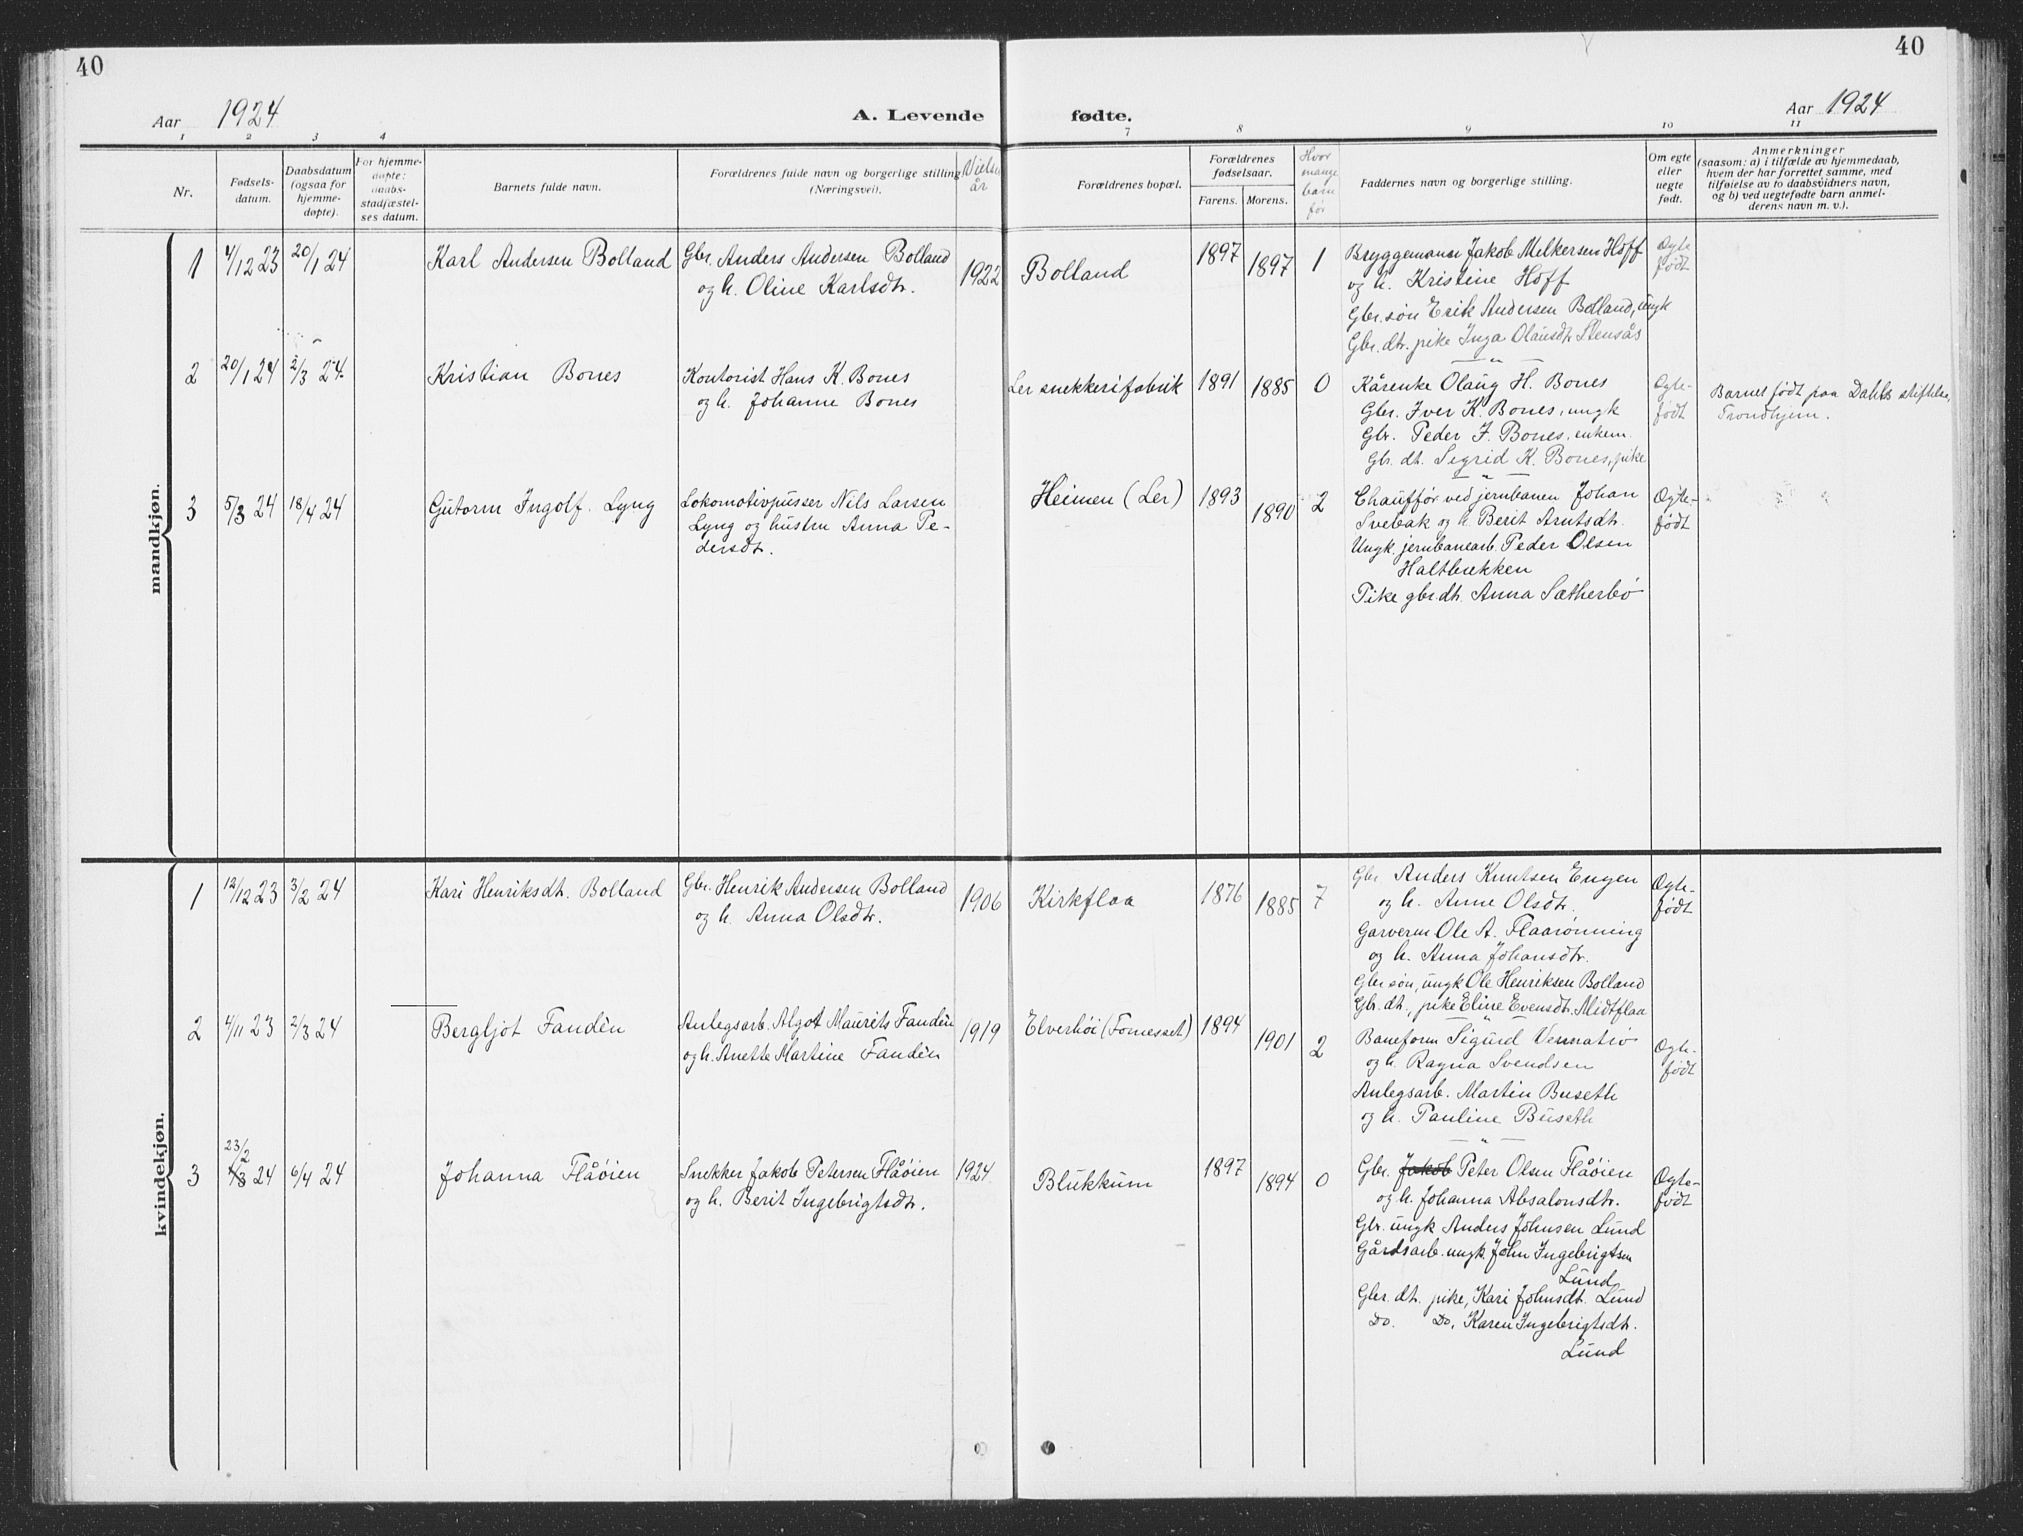 40
40
Aar 1924
A. Levende fødte.
Aar 1924
1 2 3 4 7 8 9 10 11
Nr.
Fødsels-
datum.
Daabsdatum
(ogsaa for
hjemme-
døpte).
For hjemme-
døpte:
daabs-
stadfæstel-
ses datum.
Barnets fulde navn.
Forældrenes fulde navn og borgerlige stilling
(Næringsvei).
Vielses
år
Forældrenes bopæl.
Forældrenes
fødselsaar.
Farens. Morens.
Hvor
mange
barn
før
Faddernes navn og borgerlige stilling.
Om egte
eller
uegte
født.
Anmerkninger
(saasom: a) i tilfælde av hjemmedaab,
hvem der har forrettet samme, med
tilføielse av to daabsvidners navn,
og b) ved uegtefødte barn anmel-
derens navn m. v.).
mandkjøn.
1 4/12 23 20/1 24 Karl Andersen Bolland
Gbr. Anders Andersen Bolland
og h. Oline Karlsdtr.
1922 Bolland 1897 1897 1
Bryggemann Jakob Melkersen Hoff
og h. Kristine Hoff
Gbr. søn Erik Andersen Bolland, ungk
Gbr. dtr. pike Inga Olausdtr Stensås
Ogte
født
2 20/1 24 2/3 24 Kristian Bones
Kontorist Hans K. Bones
og h. Johanne Bones
Ler snekkerifabrik 1891 1885 0
Kårenke Olaug H. Bones
Gbr. Iver K. Bones, ungk
Gbr. Peder J. Bones, enkem.
Gbr. dt. Sigrid K. Bones, pike
Ogte-
født
Barnet født paa Dahls stiftelse,
Trondhjem.
3 5/3 24 18/4 24 Gutorm Ingolf Lyng
Lokomotivpusser Nils Larsen
Lyng og hustru Anna Pe-
dersdt.
Heimen (Ler) 1893 1890 2
Chauffør ved jernbanen Johan
Svebak og h. Berit Arntsdt.
Ungk. jernbanearb. Peder Olsen
Haltbrekken
Pike gbr.dt. Anna Sætherbø
Ogte-
født
kvindekjøn.
1 12/12 23 3/2 24 Kari Henriksdt. Bolland
Gbr. Henrik Andersen Bolland
og h. Anna Olsdtr.
1906 Kirkflaa 1876 1885 7
Gbr Anders Knutsen Engen
og h. Anne Olsdtr.
Garverm Ole A. Flaarønning
og h. Anna Johansdtr.
Gbr søn, ungk Ole Henriksen Bolland
Gbr. dt., pike Eline Evensdtr. Midtflaa
Ogte-
født
2 4/11 23 2/3 24 Bergljot Fandèn
Anlegsarb. Algot Maurits Fandèn
og h. Anette Martine Fandèn
1919 Elverhöi (Fornesset) 1894 1901 2
Baneform Sigurd Vennatrø
og h. Ragna Svendsen
Anlegsarb. Martin Buseth
og h. Pauline Buseth
Ogte-
født
3 23/2 24 6/4 24 Johanna Flåøien
Snekker Jakob Petersen Flåøien
og h. Berit Ingebrigtsdtr.
1924 Blukkum 1897 1894 0
Gbr. Jakob Peter Olsen Flåøien
og h. Johanna Absalonsdtr.
Gbr. ungk Anders Johnsen Lund
Gårdsarb. ungk. John Ingebrigtsen
Lund
Gbr. dt. pike, Kari Johnsdt. Lund
Do. Do, Karen Ingebrigtsdtr.
Lund
Ogte-
født